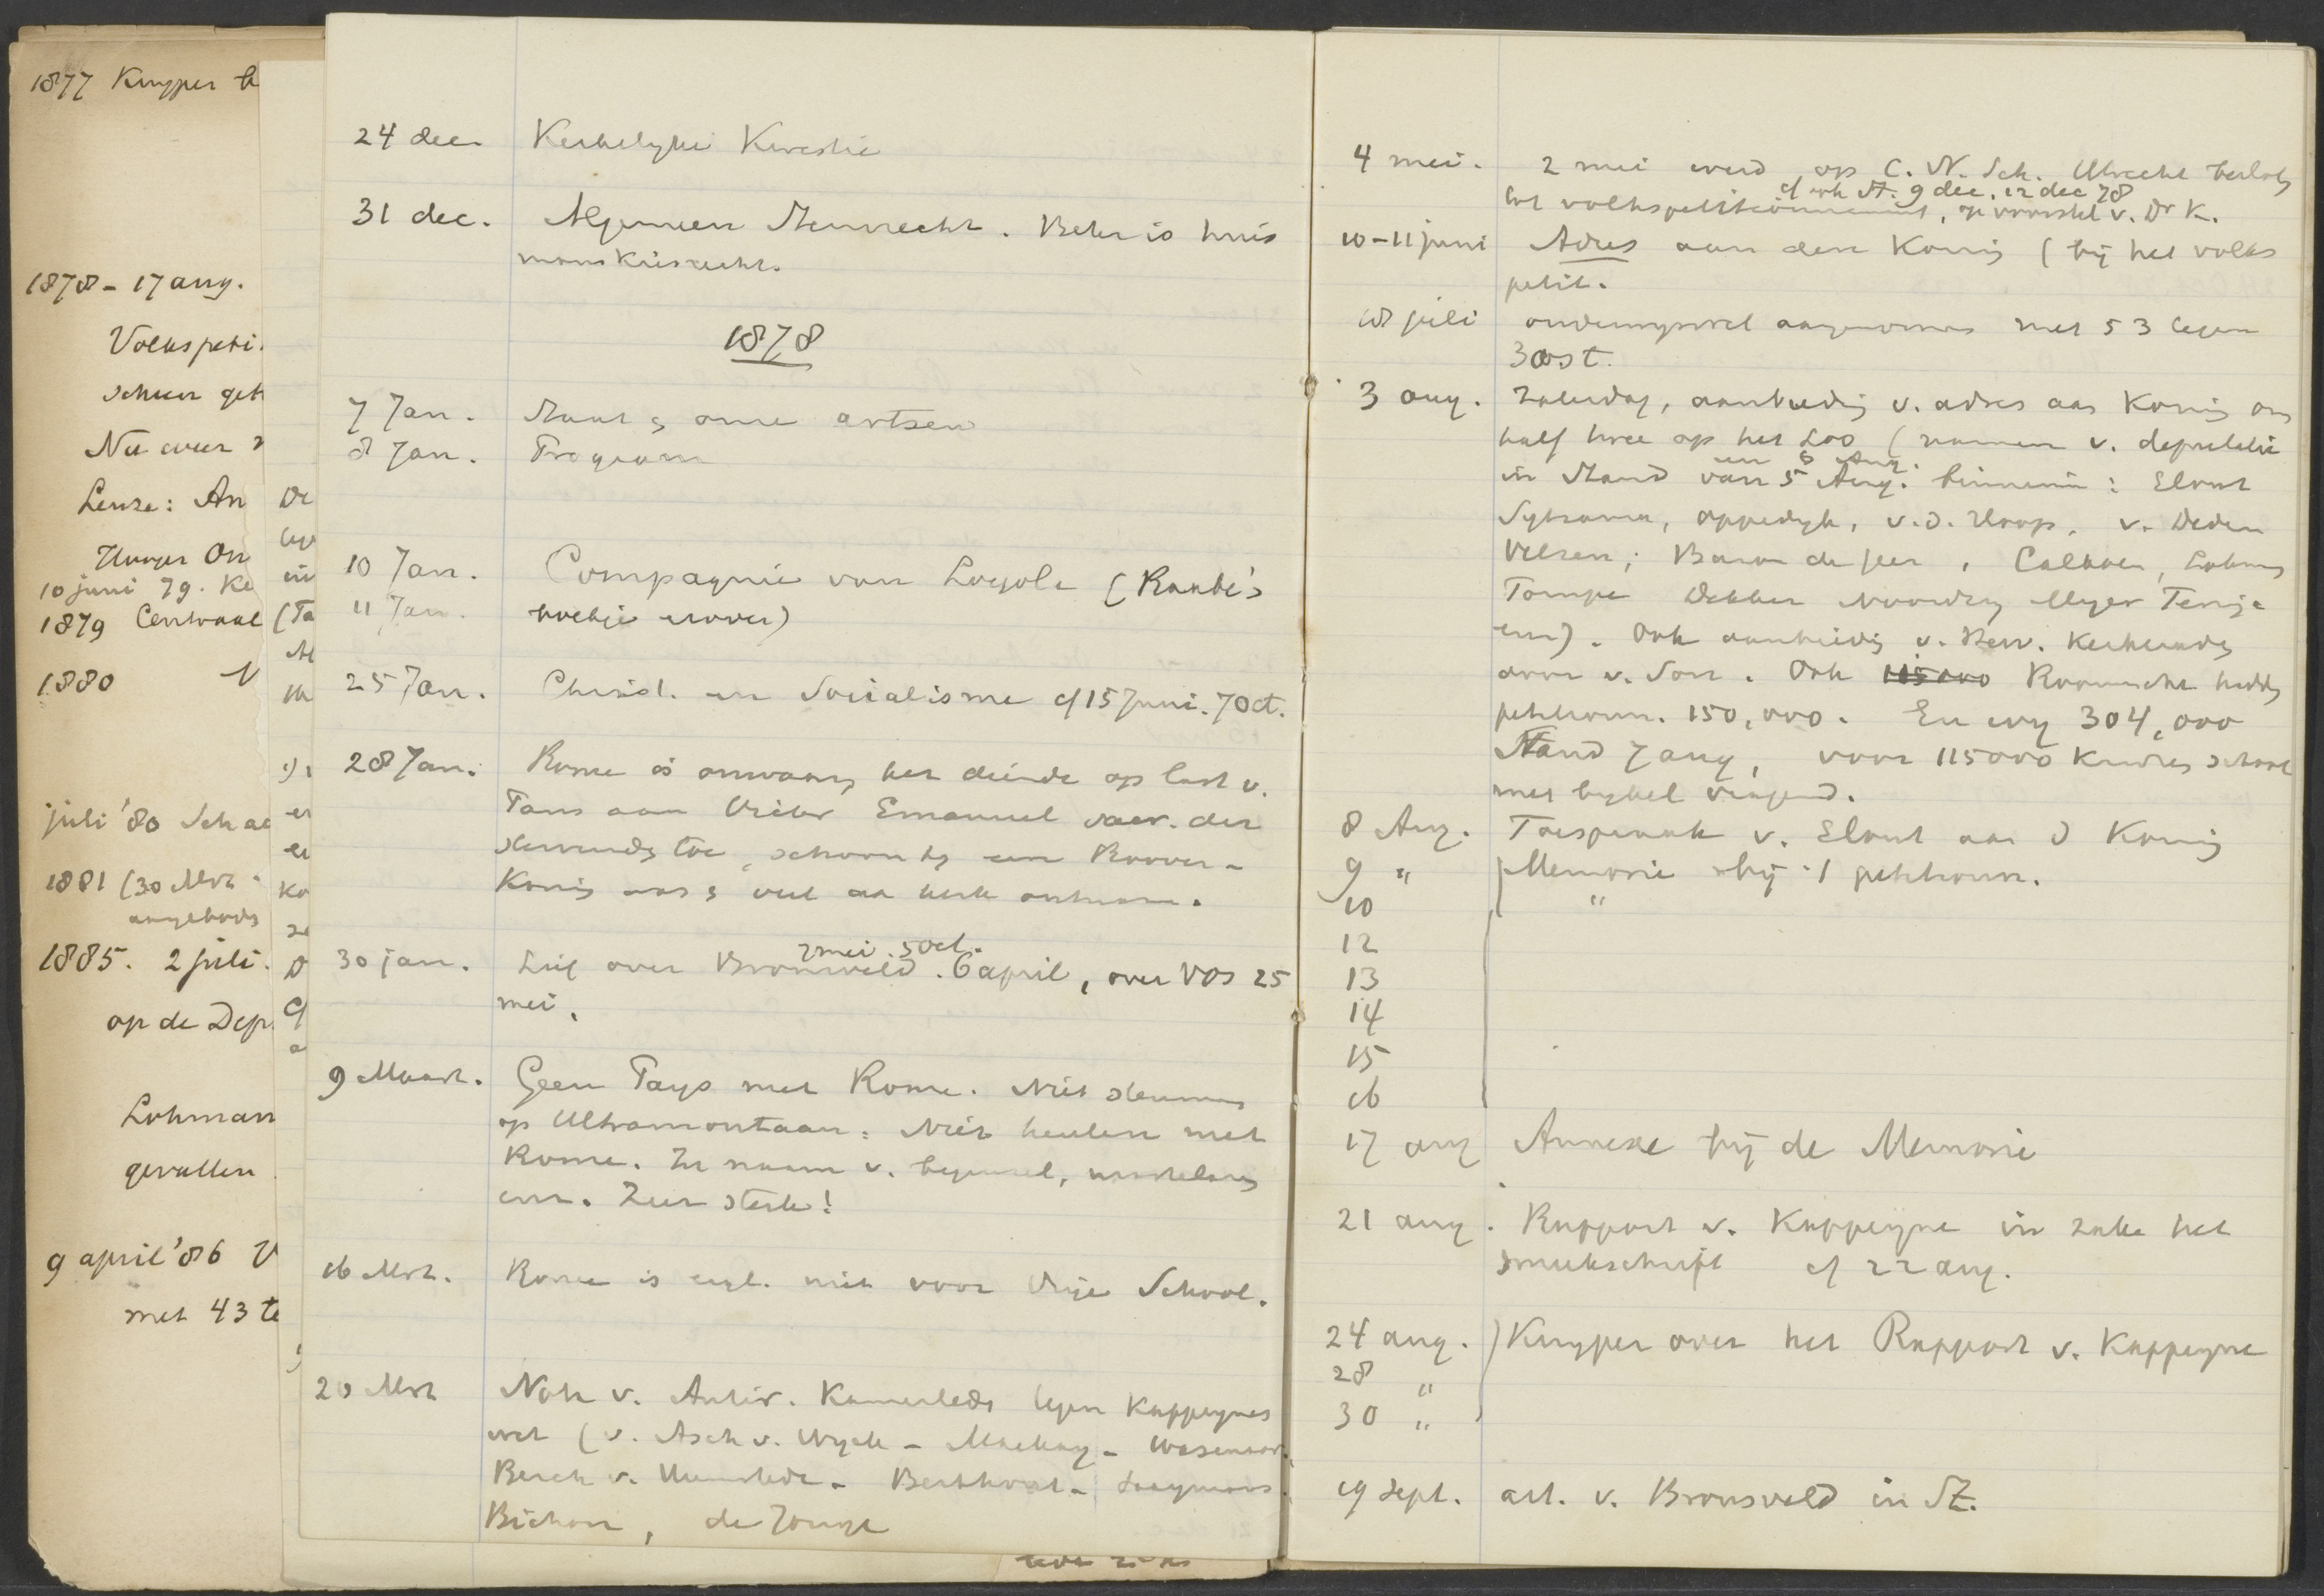 1877 Kuyper
1878 - 17 aug.
Volkspeti
schuur
Nu weer
Leuze: An
Hooger On
10 juni 79. Ke
1879 Centraal
1880
juli '80 Sch
1881 (30 Mrt
aangeboden
1885. 2 juli.
op de Dep
Lohman
gevallen
9 april '86 V
met 43 te
24 dec. Kerkelyke Kwestie
31 dec. Algemeen Stemrecht. Beter is huis
manskiesrecht.
1878
7 Jan. Staat & onze artsen
8 Jan. Program
10 Jan. Compagnie van Loyola (Raabe's
11 Jan. boekje erover)
25 Jan. Christ. en Socialisme cf 15 Juni. 7 Oct.
28 Jan. Rome is onwaar, het deinde op last v.
Paus aan Victor Emanuel sacr. der
stervenden toe, schoon hy een Roover-
Koning was & veel aa kerk ontnam.
2 mei. 5 oct.
30 jan. Lief over Bronsveld. 6 april, over Vos 25
mei.
9 Maart. Geen Pays met Rome. Niet stemmen
op Ultramontaan: Niet heulen met
Rome. In naam v. beginsel, martelaren
enz. Zeer sterk!
16 Mrt. Rome is eigl. niet voor Vrije School.
20 Mrt Nota v. Antir. Kamerleden tegen Kappeynes
wet (v. Asch v. Wyck - Mackay - Wassenaar.
Berch v. Heemstede - Bechthold - Saaymans
Bichon, de Jonge
4 mei. 2 mei werd op C. N. Sch. Utrecht besloten
cf ook St. 9 dec. 12 dec 78
tot volkspetitionnement, op voorstel v. Dr K.
10-11 juni Adres aan den Koning (bij het volks
petit.
18 juli onderwyswet aangenomen met 53 tegen
30 st.
3 aug. Zaterdag, aanbieding v. adres aan Koning om
half twee op het Loo (namen v. deputatie
en 6 Aug.
in Stand van 5 Aug. binnenin: Elout
Sytzama, Oppedyk, v.d. Hoop, v. Dedem
Velzen; Baron de Geer, Calkoen, Lohman
Tompe Dekker Noordzy Meyer Tenije
enz). Ook aanbieding v. Herv. Kerkeraden
door v. Son. Ook 115000 Roomschen hadden
petitionn. 150,000. En wy 304,000
Stand 7 aug, voor 115000 Kinders school
met bybel vragend.
8 Aug. Toespraak v. Elout aan d Koning
9 " Memorie bij 't petitionn.
10 "
12
13
14
15
16
17 aug Annexe bij de Memorie
21 aug. Rapport v. Kappeyne in zake het
smeekschrift cf 22 aug.
24 aug. Kuyper over het Rapport v. Kappeyne
28 "
30 "
19 Sept. art. v. Bronsveld in St.